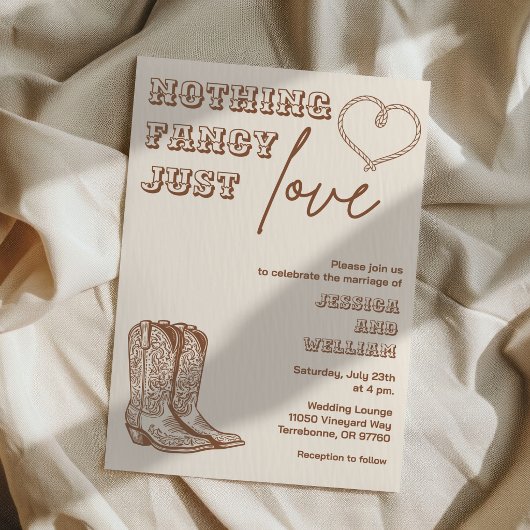 NOTHING
FANCY
JUST love
Please join us
to celebrate the marriage of
JESSICA
AND
WELLIAM
Saturday, July 23th
at 4 pm.
Wedding Lounge
11050 Vineyard Way
Terrebonne, OR 97760
Reception to follow